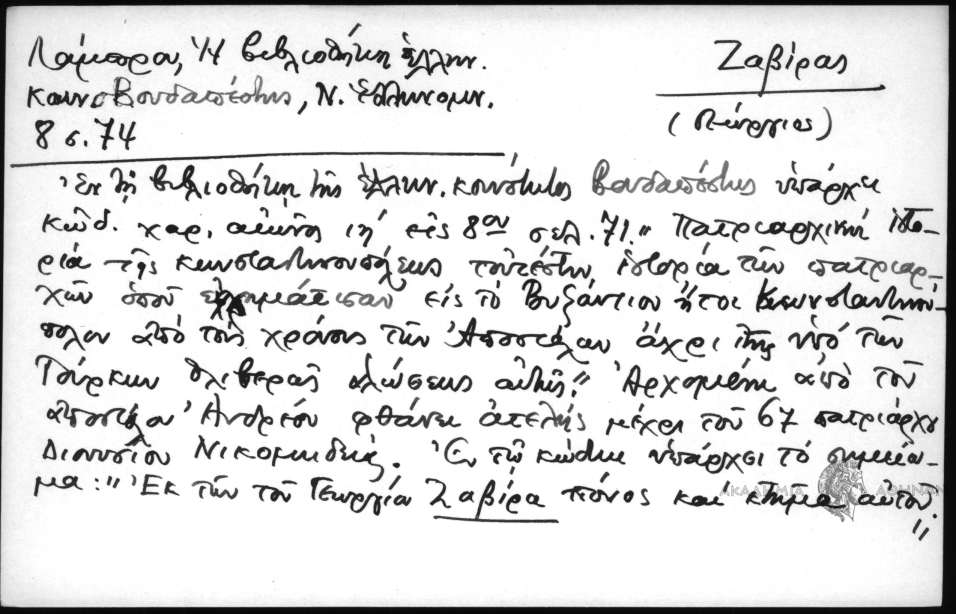 Λάμπρου, Ἡ βιβλιοθήκη Ἑλλην.
Κοινο Βουδαπέστης, Ν. Ἑλληνομν.
8 σ. 74
Ζαβίρας
(Γεώργιος)
Ἐν τῇ βιβλιοθήκῃ τῆς Ἑλλην. κοινότητος Βουδαπέστης ὑπάρχει
κῶδ. χαρ. αἰῶνος ιη' εἰς 8ον σελ. 71. "Πατριαρχική ἱστο-
ρία τῆς Κωνσταντινουπόλεως τουτέστιν ἱστορία τῶν πατριαρ-
χῶν ὁποῦ ἐχρημάτισαν εἰς τὸ Βυζάντιον ἤτοι Κωνσταντινού-
πολιν ἀπὸ τοὺς χρόνους τῶν Ἀποστόλων ἄχρι τῆς ὑπό τῶν
Τούρκων θλιβερᾶς ἁλώσεως αὐτῆς". Ἀρχομένη ἀπὸ τοῦ
ἀποστόλου Ἀνδρέου φθάνει ἀτελής μέχρι τοῦ 67 πατριάρχου
Διονυσίου Νικομηδείας. Ἐν τῷ κώδικι ὑπάρχει τό σημείω-
μα: "Ἐκ τῶν τοῦ Γεωργίου Ζαβίρα πόνος καί κτῆμα αὐτοῦ."
ΑΚΑΔΗΜΙΑ ΑΘΗΝΩΝ